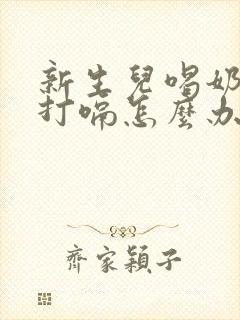 新生兒喝奶
打嗝怎麼办
齊家穎子